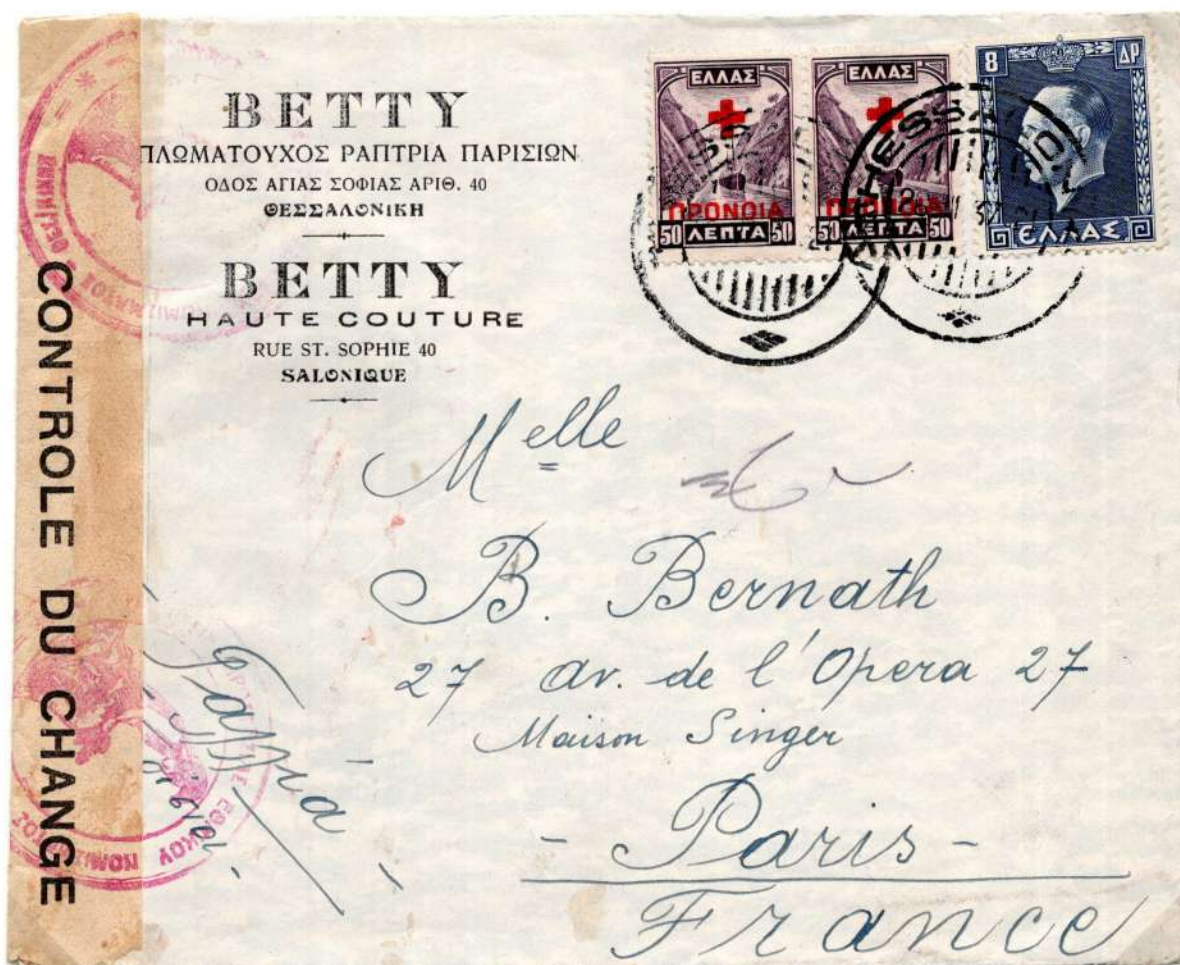 BETTY
ΠΛΩΜΑΤΟΥΧΟΣ ΡΑΠΤΡΙΑ ΠΑΡΙΣΙΩΝ
ΟΔΟΣ ΑΓΙΑΣ ΣΟΦΙΑΣ ΑΡΙΘ. 40
ΘΕΣΣΑΛΟΝΙΚΗ
BETTY
HAUTE COUTURE
RUE ST. SOPHIE 40
SALONIQUE
ΕΛΛΑΣ
ΠΡΟΝΟΙΑ
50 ΛΕΠΤΑ 50
ΕΛΛΑΣ
ΠΡΟΝΟΙΑ
50 ΛΕΠΤΑ 50
8 ΔΡ
ΕΛΛΑΣ
CONTROLE DU CHANGE
Melle
B. Bernath
27 av. de l'Opera 27
Maison Singer
Γαλλία
- Paris -
France